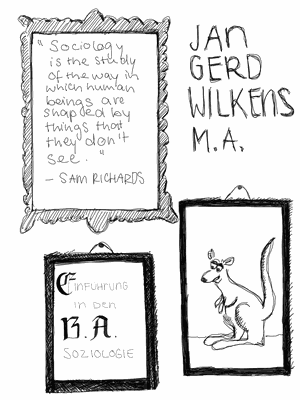 "Sociology
is the study
of the way in
which human
beings are
shaped by
things that
they don't
see."
– SAM RICHARDS
JAN
GERD
WILKENS
M.A.
EINFÜHRUNG
in den
B.A.
SOZIOLOGIE